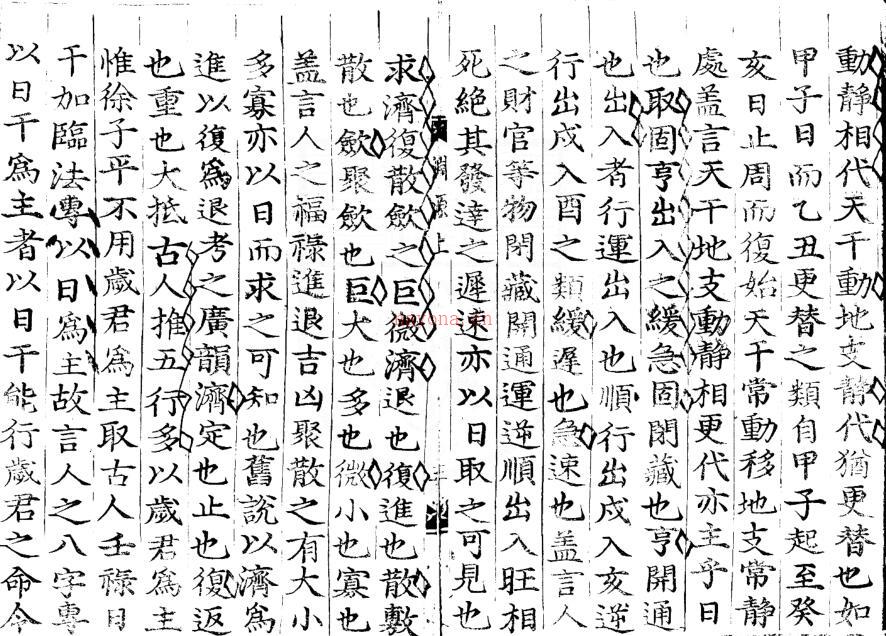 動静相代天干動地支静代猶更替也如
甲子日而乙丑更替之類自甲子起至癸
亥日止周而復始天干常動移地支常静
處盖言天干地支動静相更代亦主乎日
也取固亨出入之緩急固閉藏也亨開通
也出入者行運出入也順行出戍入亥逆
行出戍入酉之類緩遲也急速也盖言人
之財官等物閉藏開通運逆順出入旺相
死絶其發達之遲速亦以日取之可見也
淵源上
求濟復散斂之巨微濟退也復進也散敷
散也斂聚斂也巨大也多也微小也寡也
盖言人之福祿進退吉凶聚散之有大小
多寡亦以日而求之可知也舊説以濟爲
進以復爲退考之廣韻濟定也止也復返
也重也大抵古人推五行多以歲君爲主
惟徐子平不用歲君爲主取古人壬祿日
干加臨法專以日爲主故言人之八字專
以日干爲主者以日干能行歲君之命令